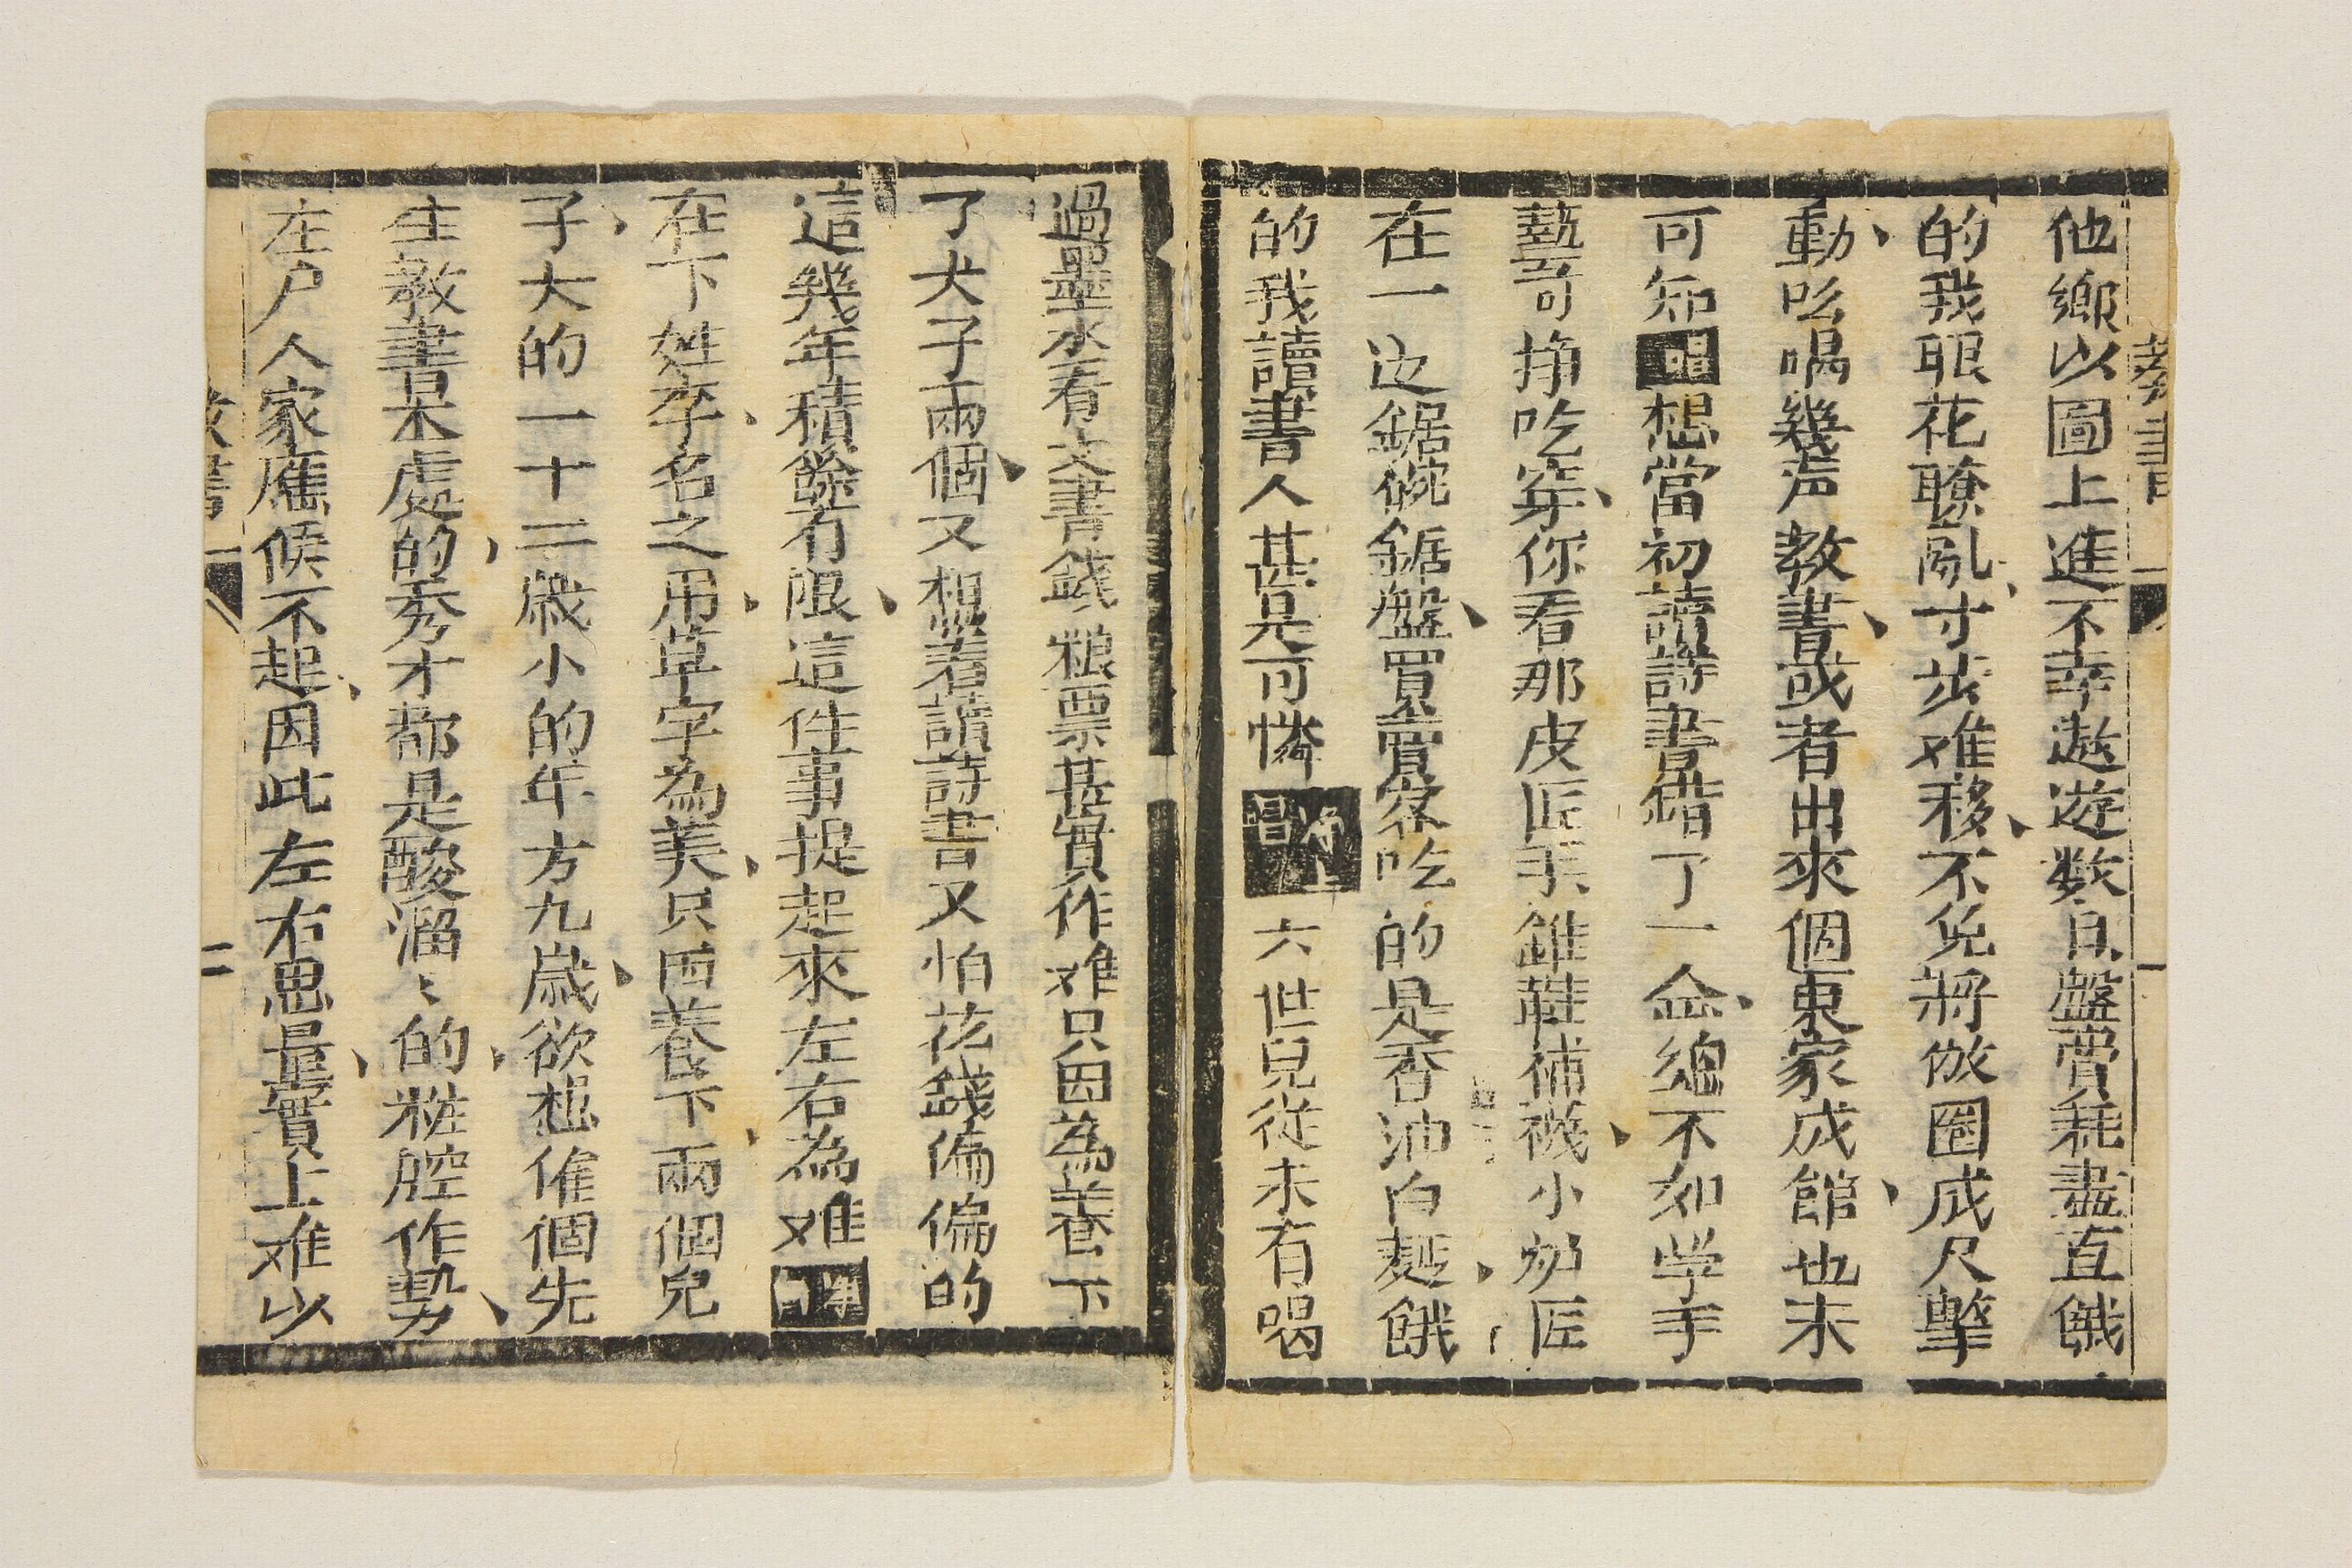 教書 一
他鄉以圖上進不幸遨遊数日盤費耗盡直餓
的我眼花瞭乱寸步难移不免將倣圈戍尺擊
動吆喝幾声教書或者出來個東家成館也未
可知唱想當初讀詩書錯了一念總不如学手
藝哥挣吃穿你看那皮匠手錐鞋補襪小炉匠
在一边鋸碗鋸盤買賣客吃的是香油白麺餓
的我讀書人甚是可憐六世兒從未有喝
過墨水看文書錢粮票甚實作难只因為養下
了犬子兩個又想着讀詩書又怕花錢偏偏的
這幾年積餘有限這件事提起來左右為难
在下姓李名之用草字為美只因養下兩個兒
子大的一十二歲小的年方九歲欲想催個先
生教書呆處的秀才都是酸溜〻的粧腔作勢
在户人家應候不起因此左右思量實上难以
教書 二